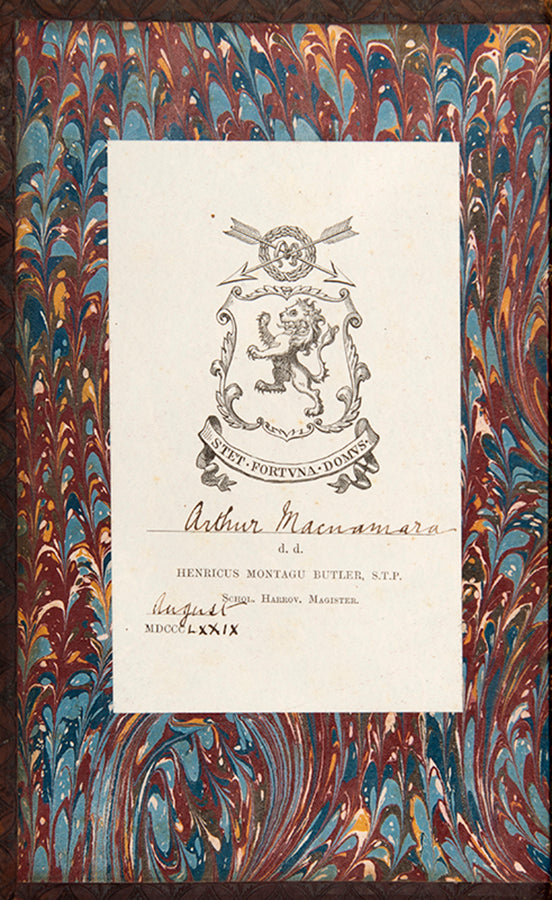 STET · FORTVNA · DOMVS ·
Arthur Macnamara
d. d.
HENRICUS MONTAGU BUTLER, S.T.P.
SCHOL. HARROV. MAGISTER.
August
MDCCCLXXIX